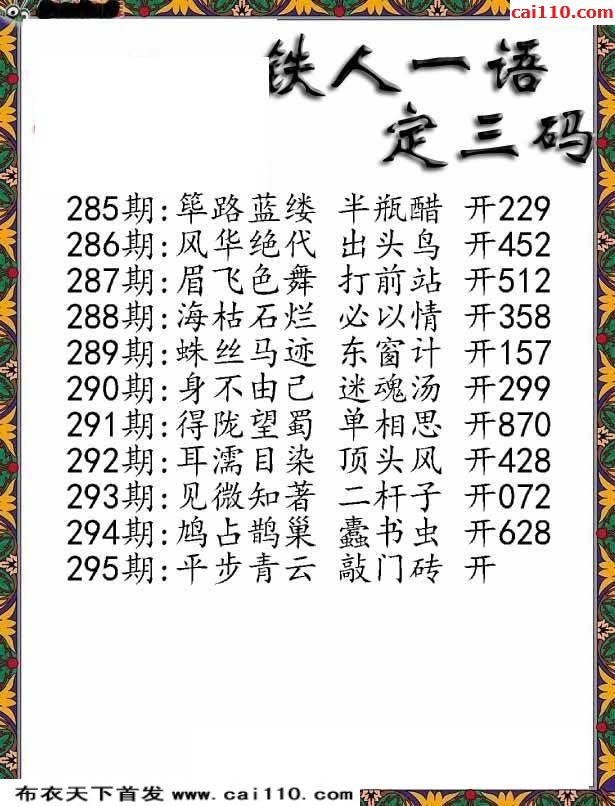 cai110.com
铁人一语
定三码
285期:筚路蓝缕 半瓶醋 开229
286期:风华绝代 出头鸟 开452
287期:眉飞色舞 打前站 开512
288期:海枯石烂 必以情 开358
289期:蛛丝马迹 东窗计 开157
290期:身不由己 迷魂汤 开299
291期:得陇望蜀 单相思 开870
292期:耳濡目染 顶头风 开428
293期:见微知著 二杆子 开072
294期:鸠占鹊巢 蠹书虫 开628
295期:平步青云 敲门砖 开
布衣天下首发 www.cai110.com